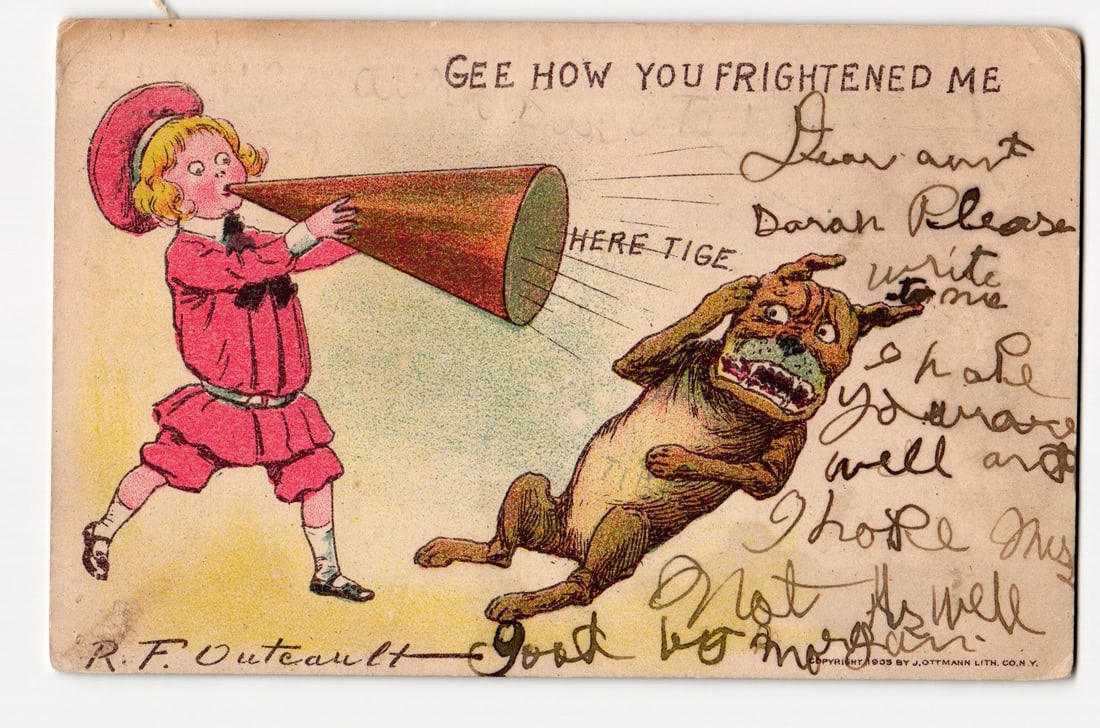 GEE HOW YOU FRIGHTENED ME
Dear aunt
Sarah Please
write
to me
HERE TIGE
I hope
you are
well and
I hope Mrs
Nat is well
good by Morgan.
R. F. Outcault
COPYRIGHT 1905 BY J. OTTMANN LITH. CO. N.Y.
TIGE